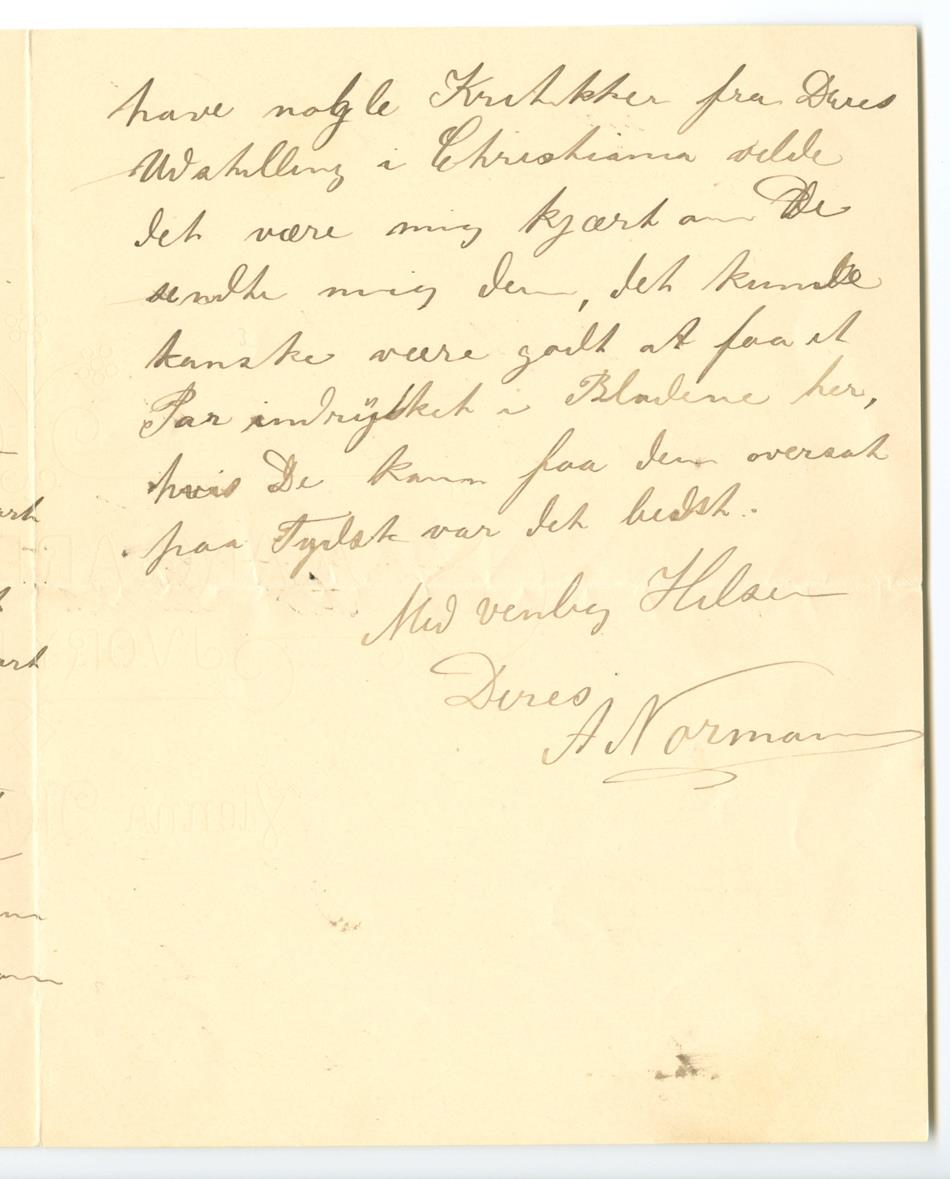 have nogle Kritikker fra Deres
Udstilling i Christiania vilde
det være mig kjært om De
sendte mig dem, det kunde
kanske være godt at faa et
Par indrykket i Bladene her,
hvis De kunn faa dem oversat
paa Tydsk var det bedst.
Med venlig Hilsen
Deres
A Normann